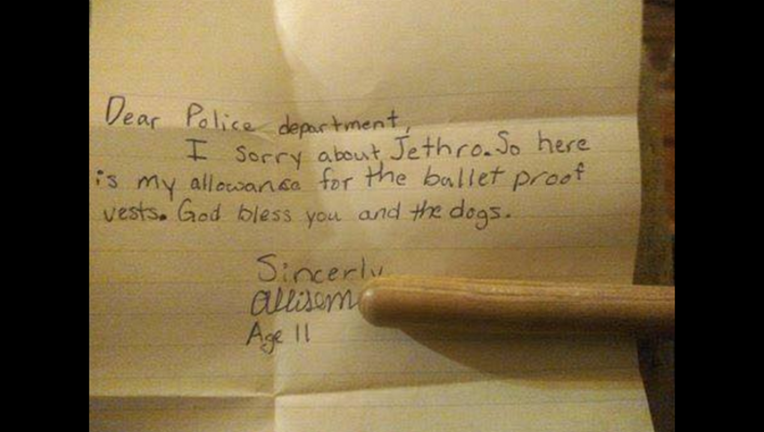 Dear Police department,
I sorry about Jethro. So here
is my allowansa for the ballet proof
vests. God bless you and the dogs.
Sincerly
Allison
Age 11